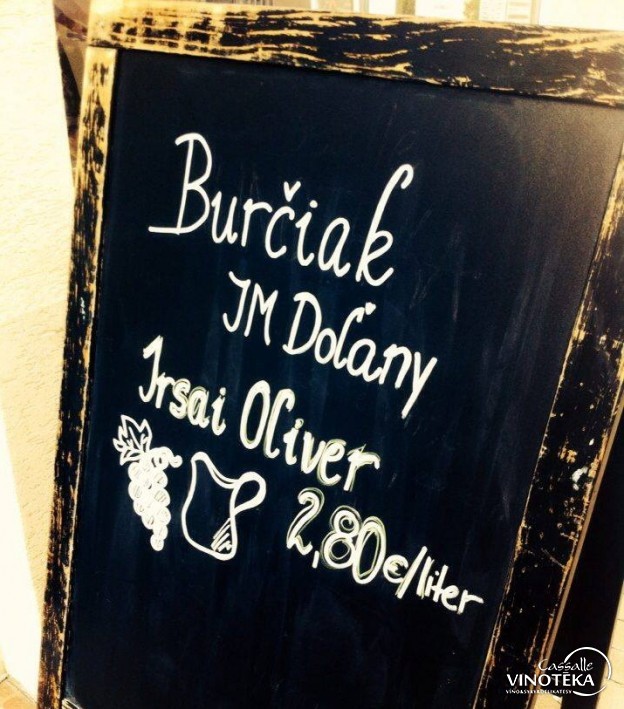 Burčiak
JM Doľany
Irsai Oliver
2,80€/liter
Cassalle
VINOTÉKA
VÍNO&SYRY&DELIKATESY